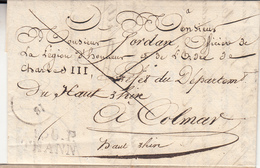 a
Monsieur Monsieur
Jordan Officier de
La Légion d'Honneur & de L'Ordre de
Charles III, Préfet du Departemt
du Haut Rhin
A Colmar
Haut Rhin
P.66.P.
THANN